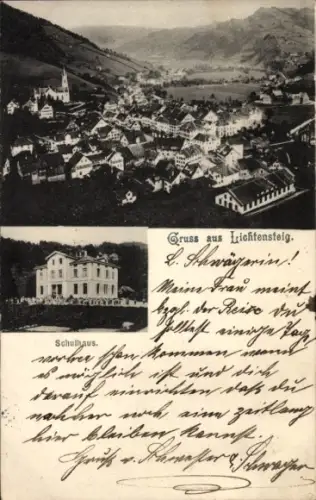 Gruss aus Lichtensteig.
L. Schwägerin!
Meine Frau meint
bezgl. der Reise du
solltest einige Tage
Schulhaus.
vorher schon kommen wenn
es möglich ist und dich
darauf einrichten dass du
nachher noch eine zeitlang
hier bleiben kannst.
Gruss v. Schwester u. Schwager